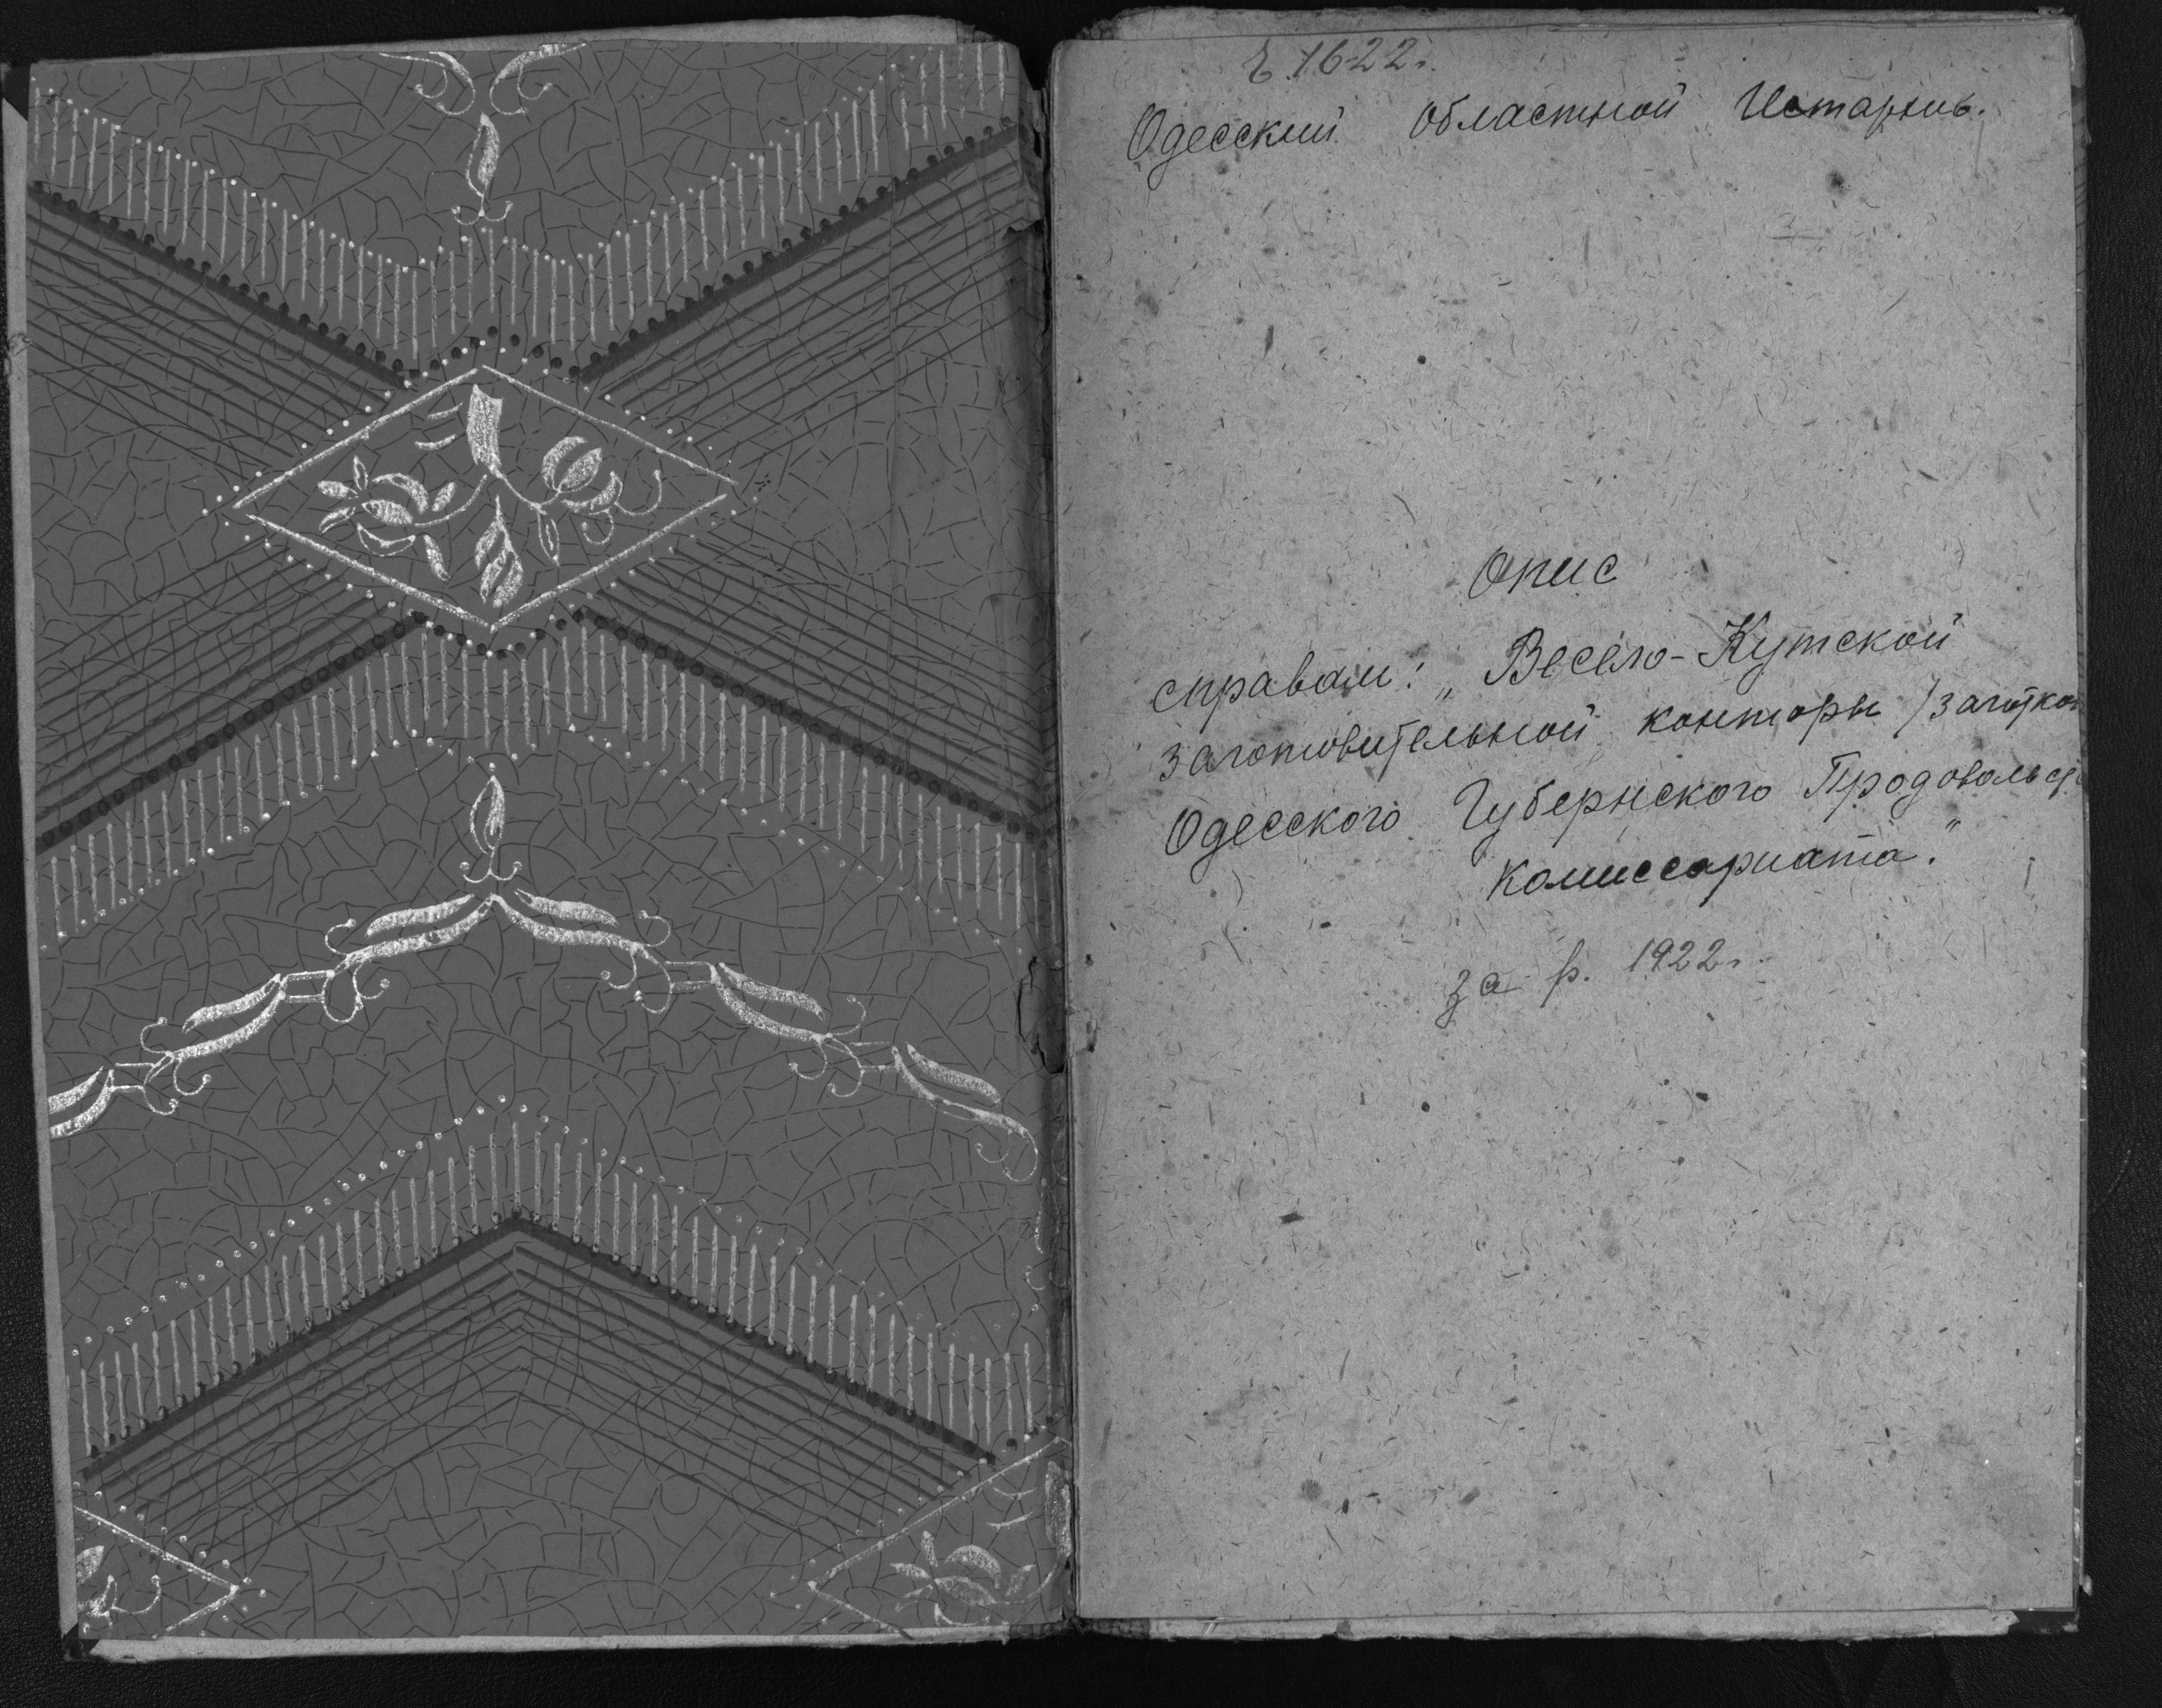 1622.
Одесский областной Истархив.
Опис
справам: „Весело-Кутской
заготовительной конторы /
Одесского Губернского
Комиссариата."
за р. 1922.